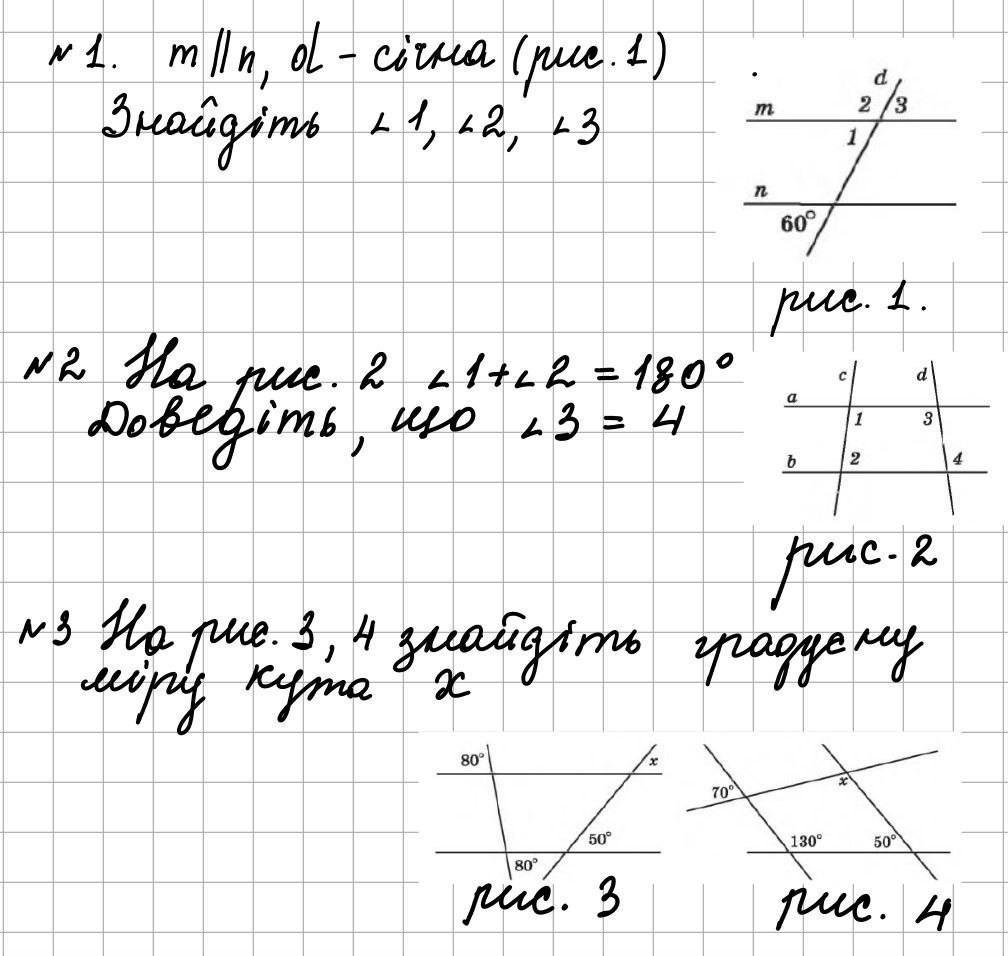 №1. m || n, d - січна (рис. 1)
Знайдіть ∠1, ∠2, ∠3
d
m 2 3
1
n
60°
рис. 1.
№2 На рис. 2 ∠1+∠2 = 180°
Доведіть, що ∠3 = 4
c d
a
1 3
b 2 4
рис. 2
№3 На рис. 3, 4 знайдіть градусну
міру кута x
80° x
50°
80°
рис. 3
70° x
130° 50°
рис. 4